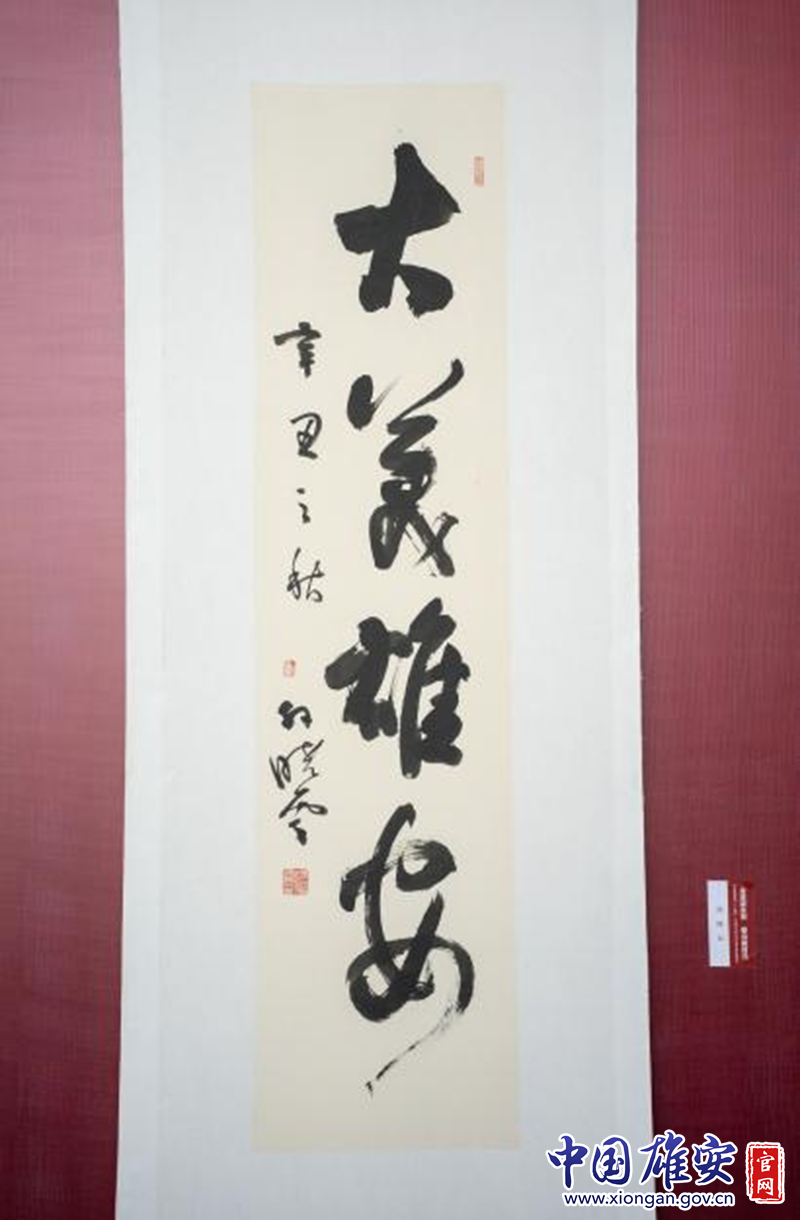 大美雄安
辛丑之秋
孙晓雲
中国雄安
官网
www.xiongan.gov.cn